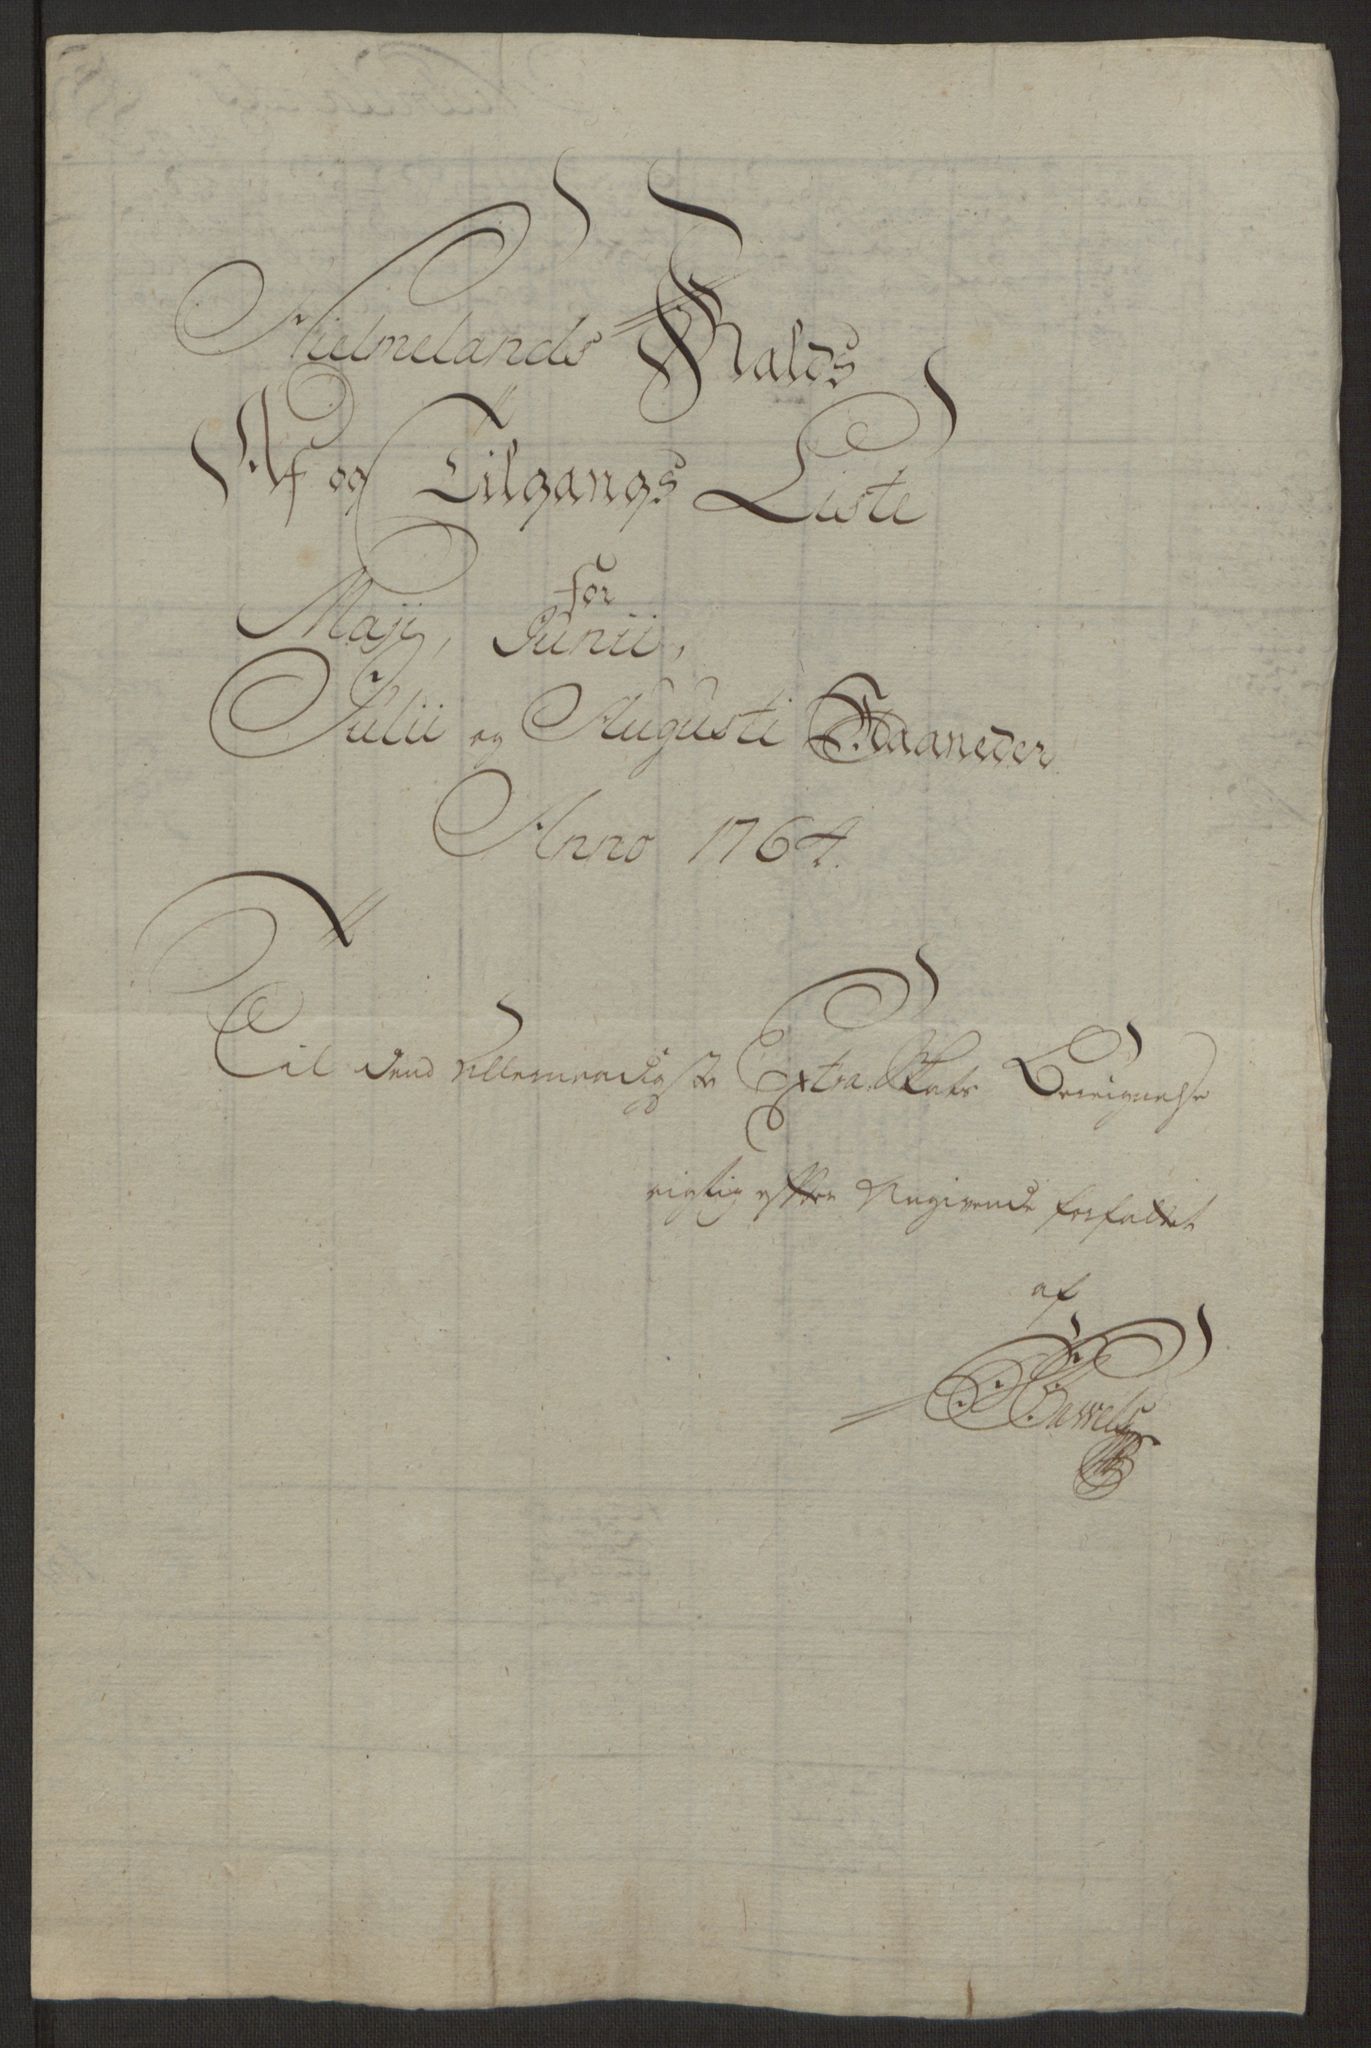 Hielmelands Kalds
Af og Tilgangs Liste
for
Maji, Junii,
Julii og Augusti Maaneder
Anno 1764.
Til dend allernaadigste Extra Skats Bereignelse
rigtig efter Angivende forfattet
af